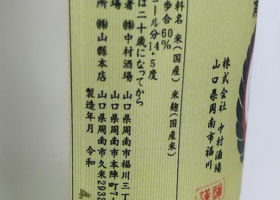 株式会社 中村酒場
山口県周南市福川
料名 米(国産) 米麹(国産米)
歩合60%
ール分14.5度
は二十歳になってから
者 ㈱中村酒場 山口県周南市福川三丁
場 山口県周南市本陣町7-
所 ㈱山縣本店 山口県周南市久米2933
製造年月 令和